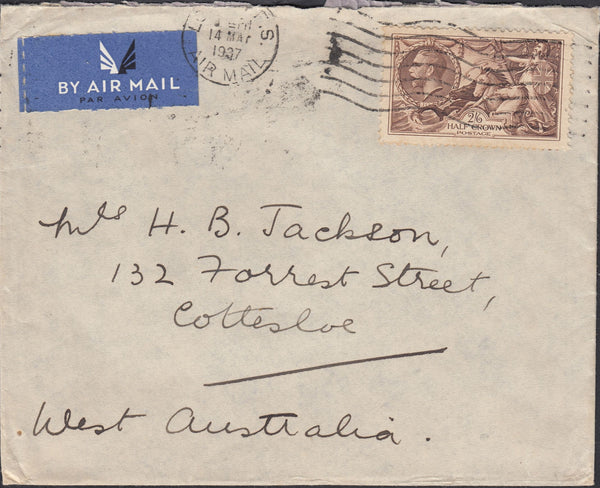 BY AIR MAIL
PAR AVION
14 MAY
1937
AIR MAIL
2/6
HALF CROWN
POSTAGE
Mrs H. B. Jackson,
132 Forrest Street,
Cottesloe
West Australia.